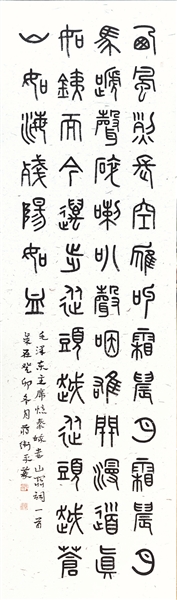 西風烈長空雁叫霜晨月霜晨月
馬蹄聲碎喇叭聲咽雄關漫道真
如鐵而今邁步從頭越從頭越蒼
山如海殘陽如血
毛澤東主席憶秦娥婁山關詞一首
癸卯冬月